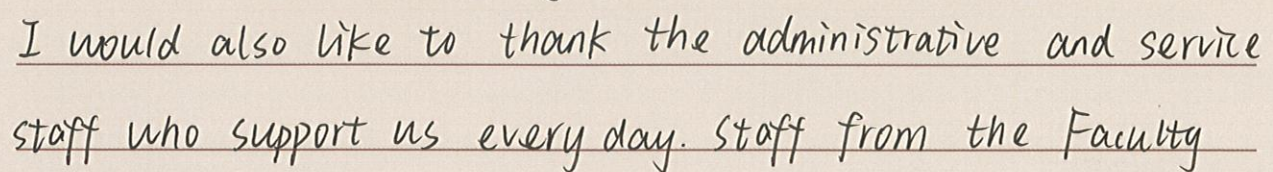 I would also like to thank the administrative and service
staff who support us every day. Staff from the Faculty